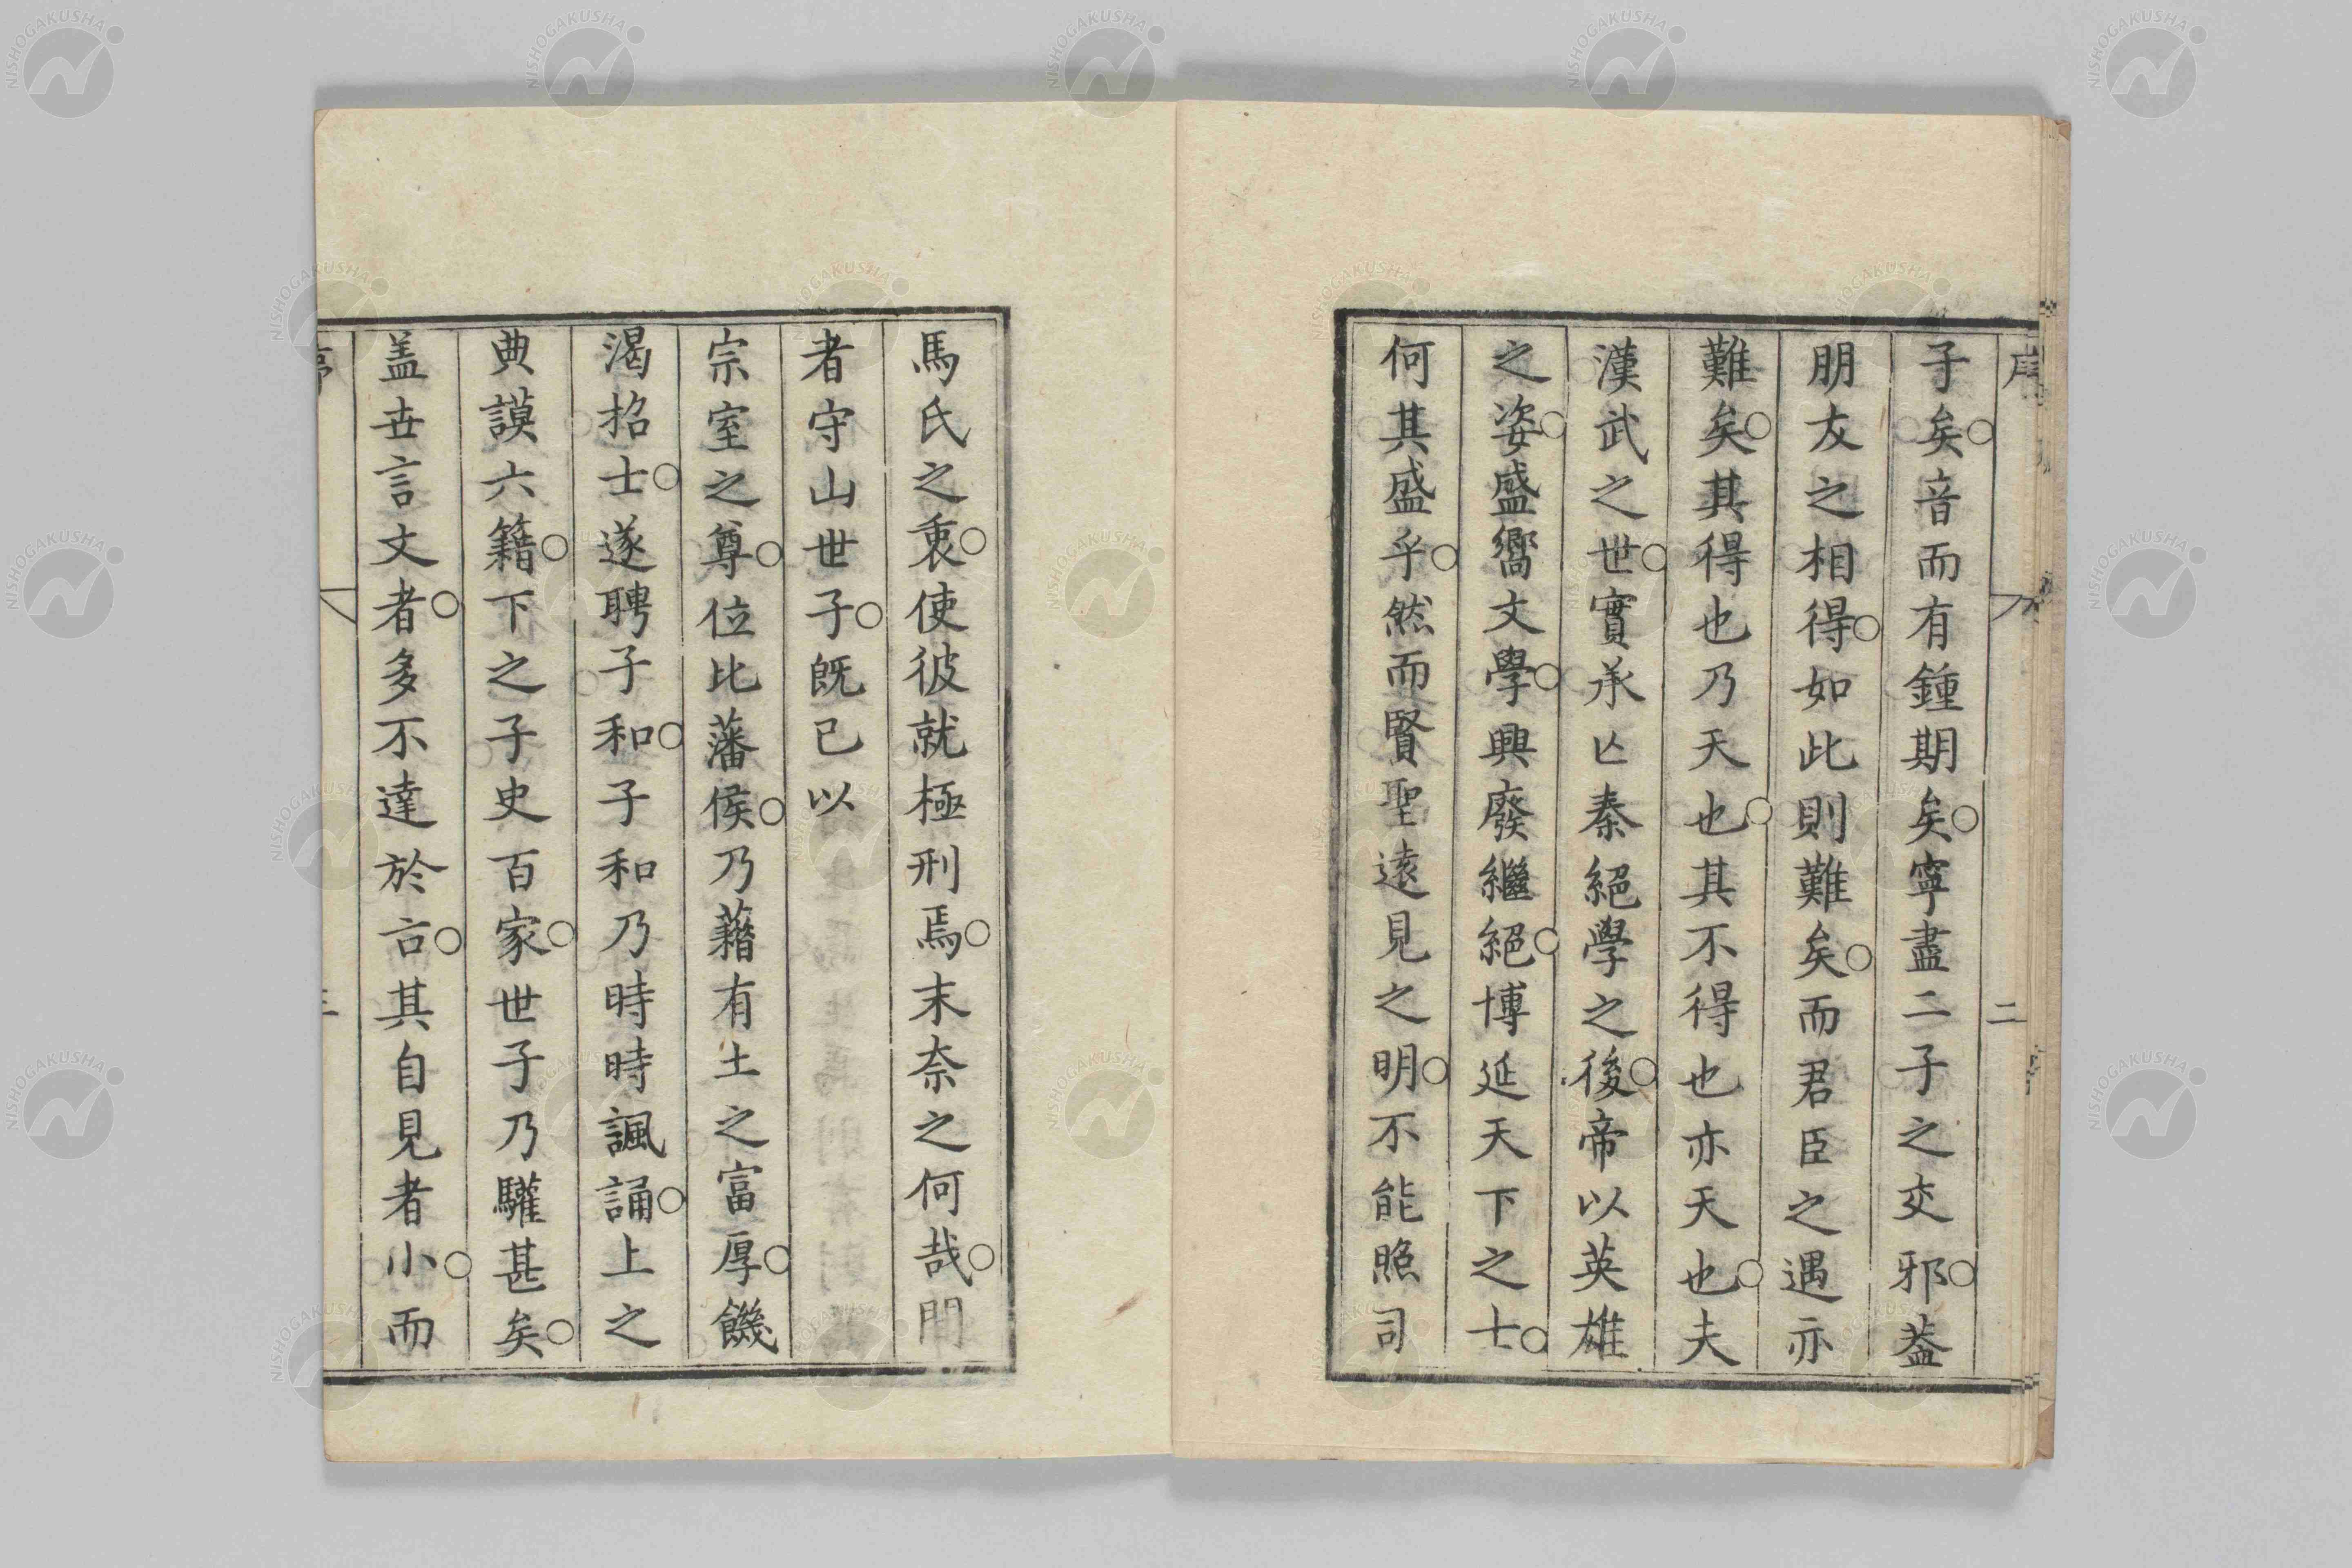 序
二
子矣○音而有鍾期矣○寧盡二子之交邪○葢
朋友之相得○如此則難矣○而君臣之遇亦
難矣○其得也乃天也○其不得也亦天也○夫
漢武之世○實承亾秦絕學之後○帝以英雄
之姿○盛嚮文學○興廢繼絕○博延天下之士○
何其盛乎○然而賢聖遠見之明○不能照司
馬氏之衷○使彼就極刑焉○末奈之何哉○門
者守山世子○既已以
宗室之尊○位比藩侯○乃藉有土之富厚○饑
渴招士○遂聘子和○子和乃時時諷誦○上之
典謨六籍○下之子史百家○世子乃驩甚矣○
盖世言文者○多不達於言○其自見者小○而
三